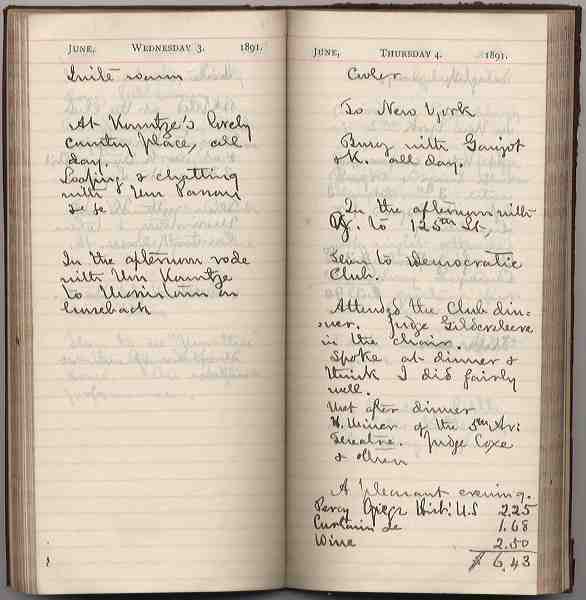 JUNE, WEDNESDAY 3. 1891.
Quite warm
At Kountze's lovely
country place, all
day.
Loafing & chatting
with Wm Parsons
&c &c
In the afternoon rode
with Wm Kountze
to Morristown on
horseback
JUNE, THURSDAY 4. 1891.
Cooler
To New York
Busy with
& K. all day.
In the afternoon with
to 125th St,
Then to Democratic
Club.
Attended the Club din-
ner. Judge Gildersleeve
in the chair.
Spoke at dinner &
think I did fairly
well.
Met after dinner
H. Miner of the 5th Av:
Theatre. Judge Coxe
& others
A pleasant evening.
Percy Hist: U.S 2.25
Curtain &c 1.68
Wine 2.50
$ 6.43